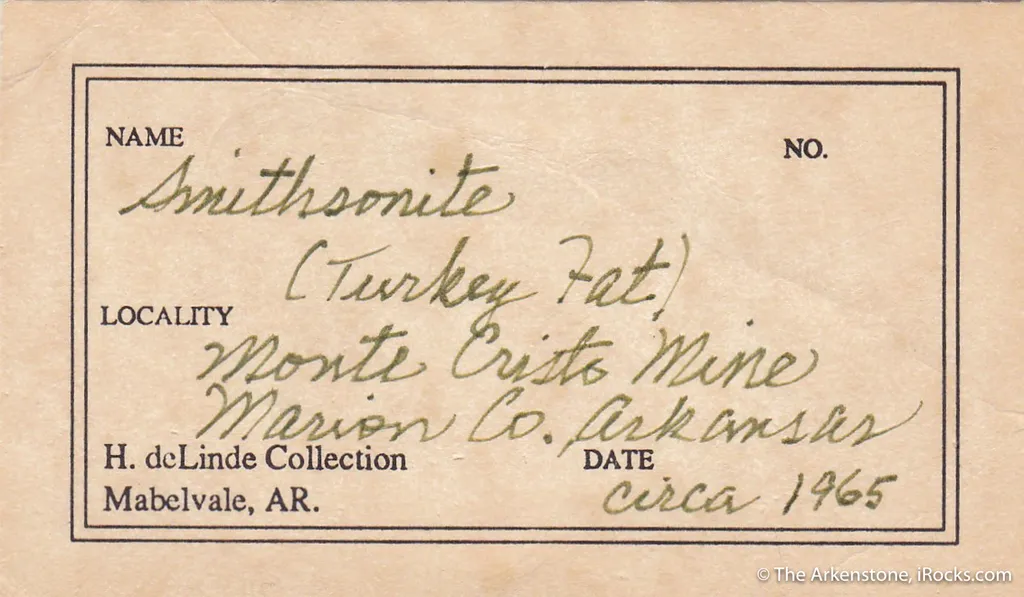 NAME
NO.
Smithsonite
(Turkey Fat)
LOCALITY
Monte Cristo Mine
Marion Co. Arkansas
H. deLinde Collection
DATE
Mabelvale, AR.
circa 1965
© The Arkenstone, iRocks.com